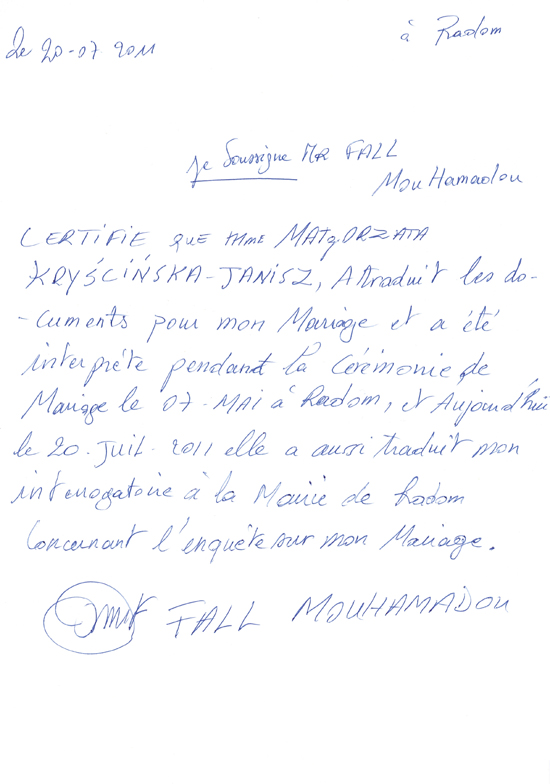 Le 20-07 2011
à Radom
Je Soussigne MR FALL
MouHamadou
CERTIFIE QUE MME MAŁgORZATA
KRYŚCIŃSKA-JANISZ, A traduit les do-
-cuments pour mon Mariage et a été
interprète pendant la Cérémonie de
Mariage le 07-MAI à Radom, et Aujourd'hui
le 20. Juil. 2011 elle a aussi traduit mon
interrogatoire à la Mairie de Radom
Concernant l'enquète sur mon Mariage.
FALL MOUHAMADOU